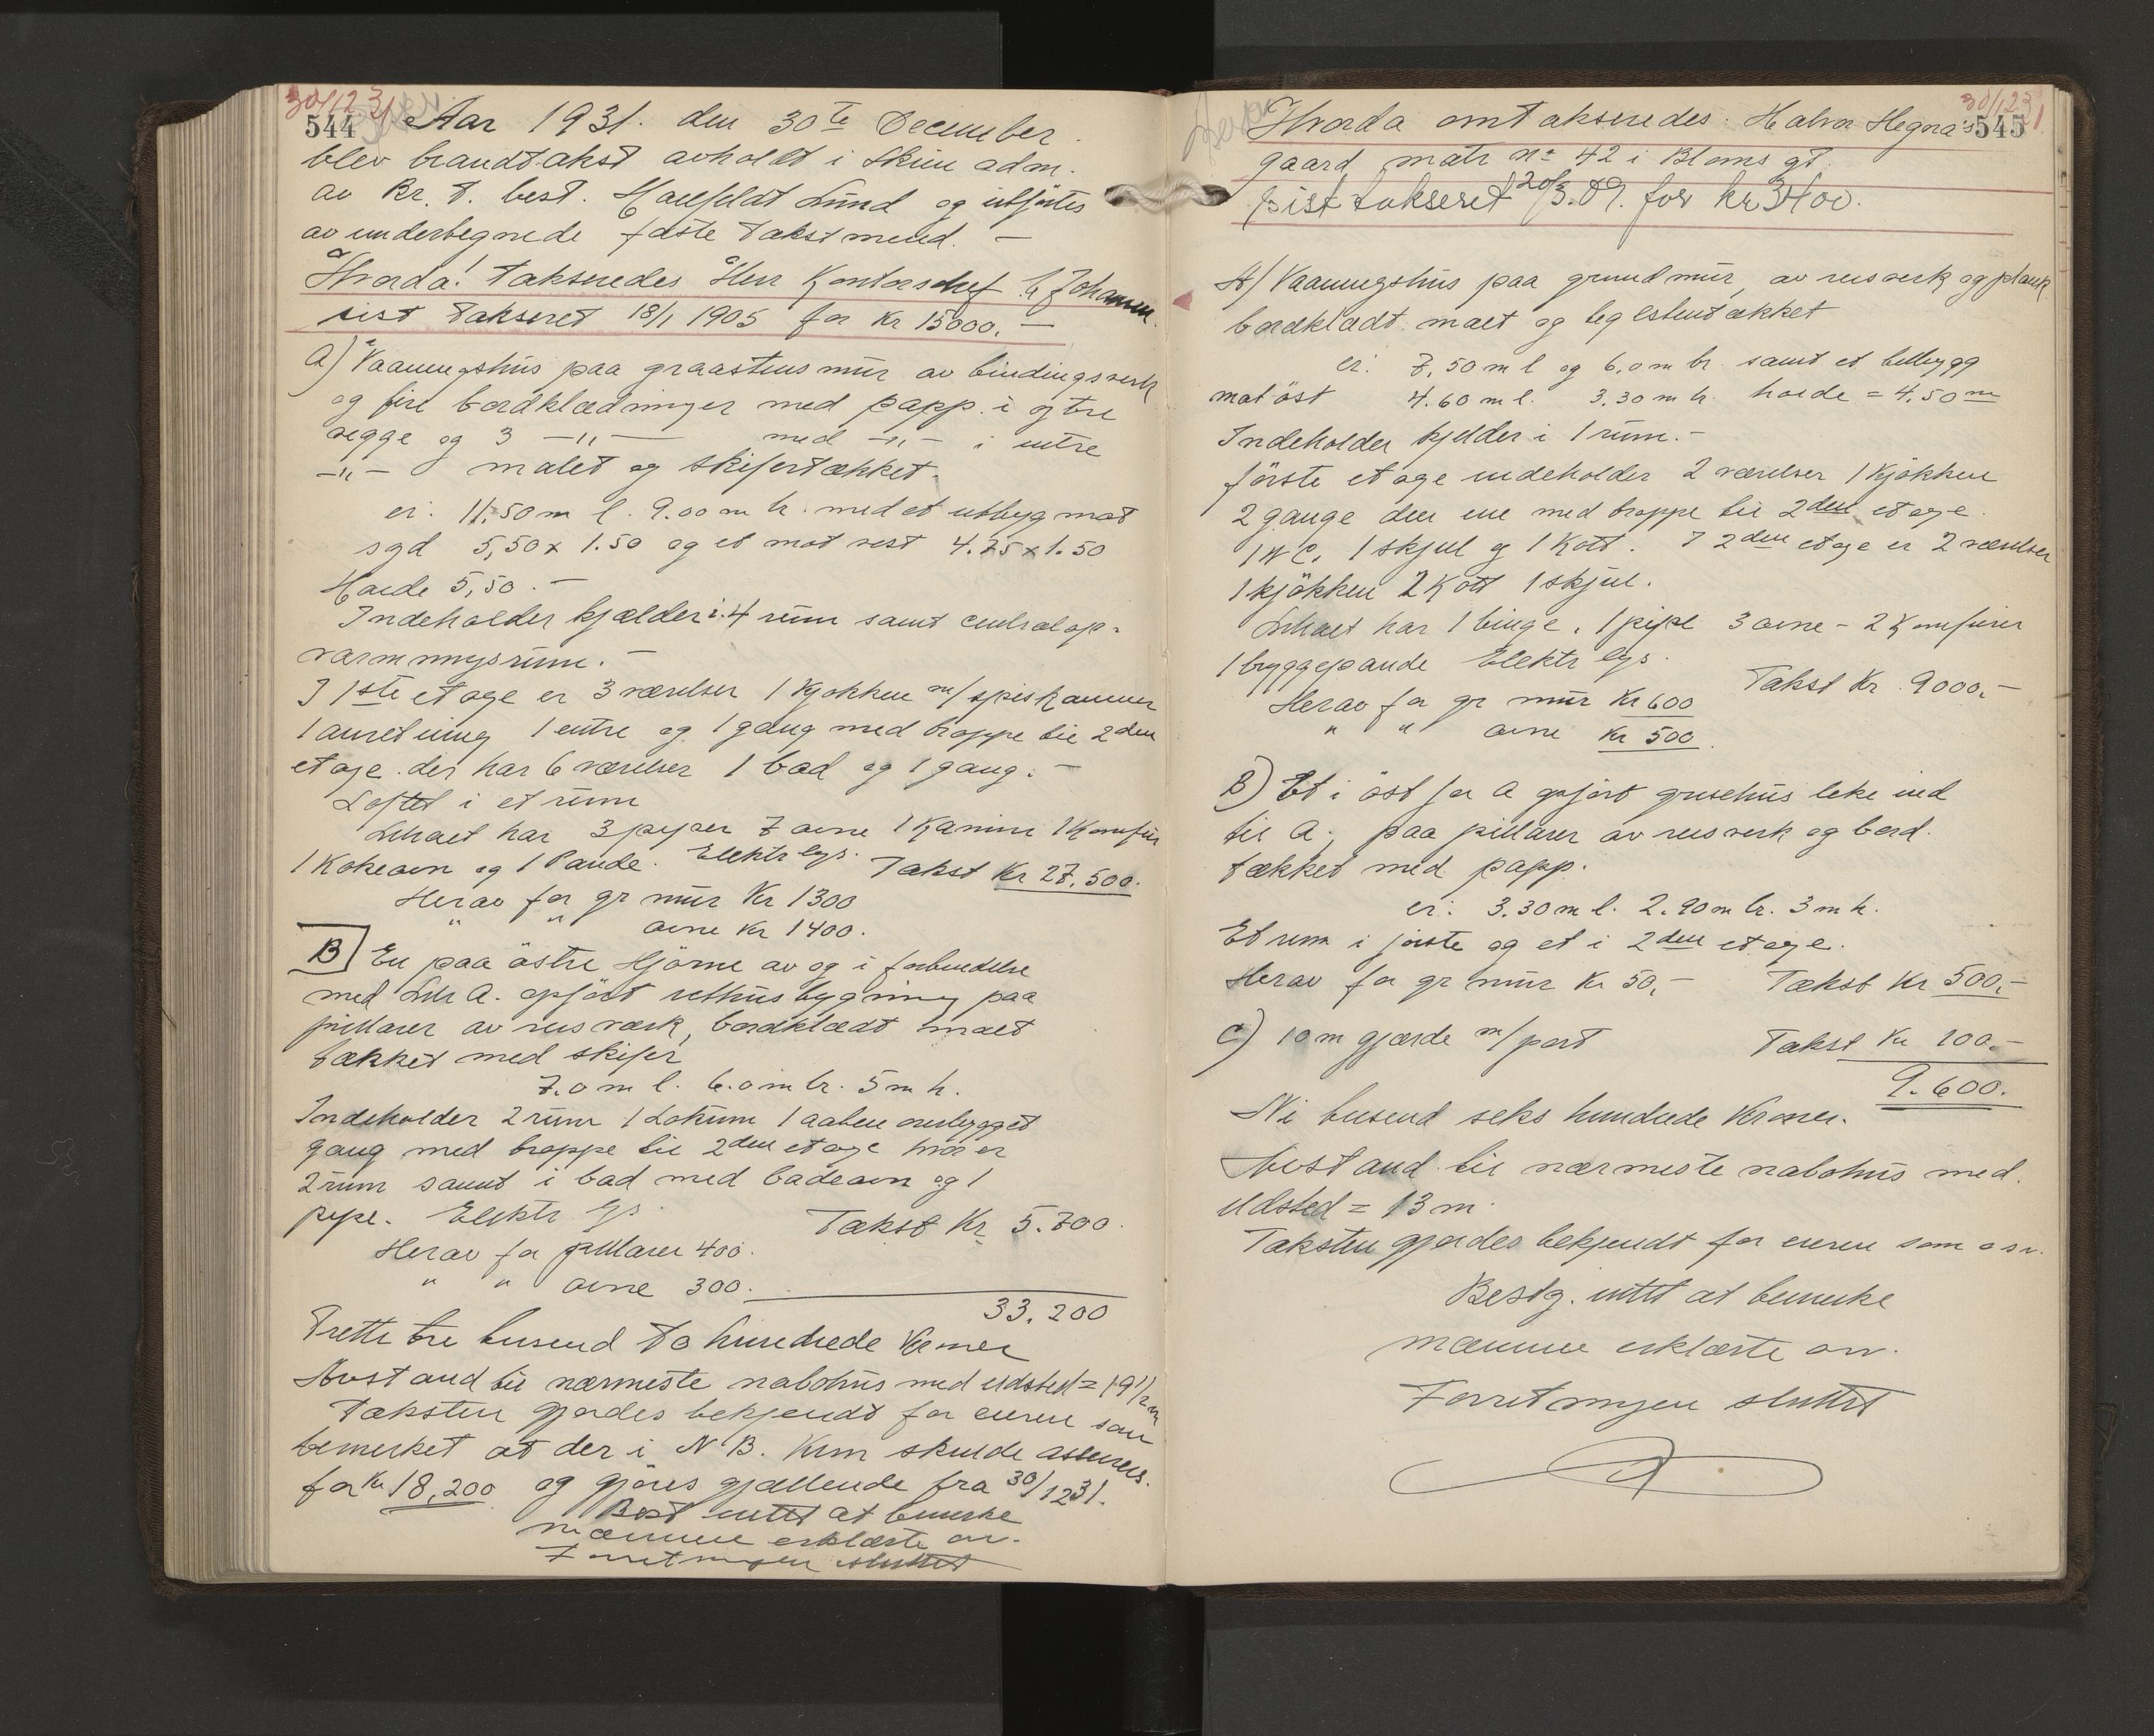 30/12 31
544 Aar 1931. den 30te December
blev brandtakst avholdt i Skien adm.
av Br. t. best. Hallfeldt Lund og utførtes
av undertegnede faste takstmend. —
Hvorda! takseredes Herr Kontorchef Johannesen.
sist takseret 18/1 1905 for Kr 15000. —
a) Vaaningshus paa graastensmur av bindingsverk
og fire bordklædninger med papp i ytre
vegge og 3 —"— med —"— i intre
—"— malet og skifertækket.
er: 11.50 m l. 9.00 m br. med et utbyg mot
syd 5,50 x 1.50 og et mot vest 4.75 x 1.50
Høide 5,50. —
Indeholder kjælder i 4 rum samt centralop-
varmningsrum. —
I 1ste etage er 3 værelser 1 kjøkken m/ spiskammer
1 anretning 1 entre og 1 gang med trappe til 2den
etage. der har 6 værelser 1 bad og 1 gang. —
Loftet i et rum
Lokalet har 3 piper 7 ovne 1 kamin 1 komfur
1 kokeovn og 1 Pande. Elektr lys. Takst Kr 27.500.
Herav for gr mur Kr 1300
" " ovne Kr 1400.
B) En paa østre hjørne av og i forbindelse
med Litr A. opført uthusbygning paa
pillarer av reisværk, bordklædt malt
tækket med skifer
7.0 m l. 6.0 m br. 5 m h.
Indeholder 2 rum 1 Lokum 1 aaben overbygget
gang med trappe til 2den etage hvor er
2 rum samt i bad med badeovn og 1
pipe. Elektr lys. Takst Kr 5.700.
Herav for pillarer 400.
" " ovne 300.
33.200
Tretti tre tusend to hundrede Kroner
Avstand til nærmeste nabohus med ildsted = 19 1/2 m
Taksten gjordes bekjendt for eieren som
bemerket at der i N B. Krm skulde assureres
for Kr 18,200 og gjøres gjællende fra 30/12 31.
Best intet at bemerke
mænnene erklærte orv.
Forretningen sluttet
30/12 31
545
Hvorda omtakseredes Halvor Hegna's
gaard matr no 42 i Bloms gt.
sist takseret 20/3. 09. for kr 3400.
A) Vaaningshus paa grundmur, av reisverk og plank
bordklædt malt og teglstentækket
er: 7,50 m l og 6,0 m br. samt et tilbygg
mot øst 4.60 m l. 3.30 m br. høide = 4.50 m
Indeholder kjelder i 1 rum. —
første etage indeholder 2 værelser 1 kjøkken
2 gange den ene med trappe til 2den etage.
1 WC, 1 skjul og 1 kott. I 2den etage er 2 værelser
1 kjøkken 2 kott 1 skjul.
Lokalet har 1 binge. 1 pipe 3 ovne - 2 Komfurer
1 bryggepande Elektr lys.
Takst Kr. 9000. —
Herav for gr mur Kr 600
" " ovne Kr 500.
B) Et i øst for A opført grusehus like ind
til A; paa pillarer av reisverk og bord.
tækket med papp.
er: 3.30 m l. 2.90 m br. 3 m h.
Et rum i første og et i 2den etage.
Herav for gr mur Kr 50,— Takst Kr 500,—
C) 10 m gjærde m/ port Takst Kr 100.—
9.600.
Ni tusend seks hundrede Kroner.
Avstand til nærmeste nabohus med
ildsted = 13 m.
Taksten gjordes bekjendt for eieren som osv.
Bestg. intet at bemerke
mænnene erklærte orv.
Forretningen sluttet